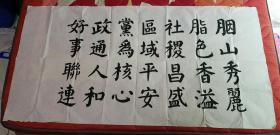 胭山秀麗
脂色香溢
社稷昌盛
區域平安
黨為核心
政通人和
好事聯連